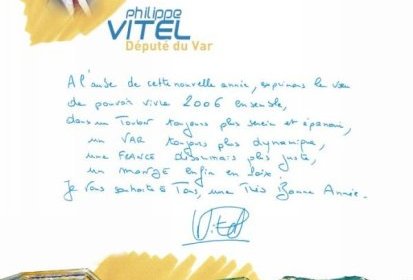 philippe
VITEL
Député du Var
A l'aube de cette nouvelle année, exprimons le vœu
de pouvoir vivre 2006 ensemble,
dans un Toulon toujours plus serein et épanoui,
un VAR toujours plus dynamique,
une FRANCE désormais plus juste,
un monde enfin en paix.
Je vous souhaite à Tous, une Très Bonne Année.
Vitel